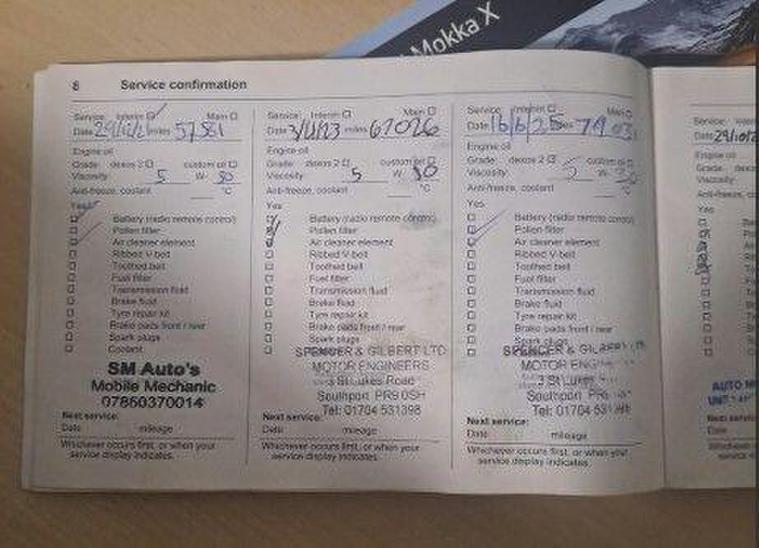 Mokka X
8 Service confirmation
Service: Interim Main
Date 29/12/21 miles 57581
Engine oil
Grade: dexos 2 custom oil
Viscosity 5 W- 30
Anti-freeze, coolant °C
Yes
Battery (radio remote control)
Pollen filter
Air cleaner element
Ribbed V-belt
Toothed belt
Fuel filter
Transmission fluid
Brake fluid
Tyre repair kit
Brake pads front / rear
Spark plugs
Coolant
SM Auto's
Mobile Mechanic
07860370014
Next service:
Date mileage
Whichever occurs first, or when your
service display indicates.
Service: Interim Main
Date miles 67026
Engine oil
Grade: dexos 2 custom oil
Viscosity: 5 W- 30
Anti-freeze, coolant °C
Yes
Battery (radio remote control)
Pollen filter
Air cleaner element
Ribbed V-belt
Toothed belt
Fuel filter
Transmission fluid
Brake fluid
Tyre repair kit
Brake pads front / rear
Spark plugs
SPENCER & GILBERT LTD
MOTOR ENGINEERS
3 St Lukes Road
Southport PR9 0SH
Tel: 01704 531398
Next service:
Date mileage
Whichever occurs first, or when your
service display indicates.
Service: Interim Main
Date 16/6/25 miles
Engine oil
Grade: dexos 2 custom oil
Viscosity: 5 W- 30
Anti-freeze, coolant °C
Yes
Battery (radio remote control)
Pollen filter
Air cleaner element
Ribbed V-belt
Toothed belt
Fuel filter
Transmission fluid
Brake fluid
Tyre repair kit
Brake pads front / rear
Spark plugs
SPENCER & GILBERT
MOTOR
3 St Lukes
Southport PR9
Tel: 01704 531398
Next service:
Date mileage
Whichever occurs first, or when your
service display indicates.
Service:
Date
Engine oil
Grade:
Viscosity:
Yes
AUTO
UNIT
Next
Date